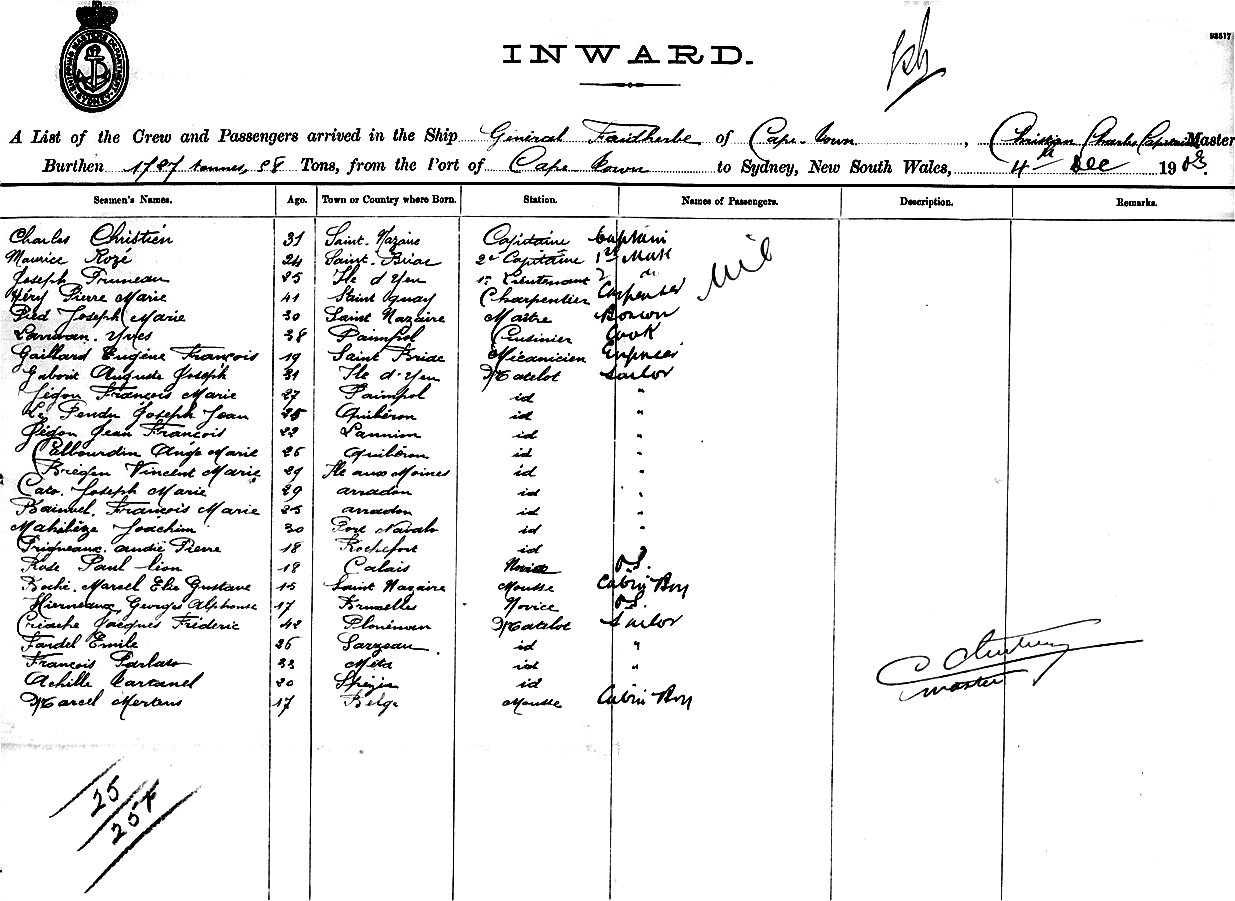 SHIPPING MASTERS DEPARTMENT SYDNEY
93517
INWARD.
A List of the Crew and Passengers arrived in the Ship Général Faidherbe of Cape-town, Christian Charles Capitaine Master
Burthen 1787 tonnes, 58 Tons, from the Port of Cape town to Sydney, New South Wales, 4th Dec 1903.
Seamen's Names. Age. Town or Country where Born. Station. Names of Passengers. Description. Remarks.
Charles Christien 31 Saint-Nazaire Capitaine Captain
Maurice Rozé 24 Saint-Briac 2d Capitaine 1st Mate
Joseph Pruneau 25 Ile d'Yeu 1r Lieutenant 2 do nil
Héry Pierre Marie 41 Saint Quay Charpentier Carpenter
Pied Joseph Marie 30 Saint Nazaire Maître Bosun
Yves 38 Paimpol Cuisinier Cook
Gaillard Eugène François 19 Saint Briac Mécanicien
Gaborit Auguste Joseph 31 Ile d'Yeu Matelot Sailor
Jégou François Marie 27 Paimpol id "
Le Pendu Joseph Jean 25 Quibéron id "
Jégou Jean François 22 Lannion id "
Calbourdin Ange Marie 26 Quibéron id "
Vincent Marie 29 Ile aux Moines id "
Cato Joseph Marie 29 arradon id "
François Marie 25 arradon id "
Joachim 30 Port Navalo id "
Pierre 18 Rochefort id "
Rose Paul Léon 18 Calais Novice O.S.
Roché Marcel Elie Gustave 15 Saint Nazaire Mousse Cabin Boy
Hierneaux Georges Alphonse 17 Bruxelles Novice O.S.
Criache Jacques Fréderic 42 Matelot Sailor
Fardel Emile 26 Sarzeau id "
François Parlato 33 id "
Achille 20 id
Marcel Mertens 17 Belge Mousse Cabin Boy
master
25
25